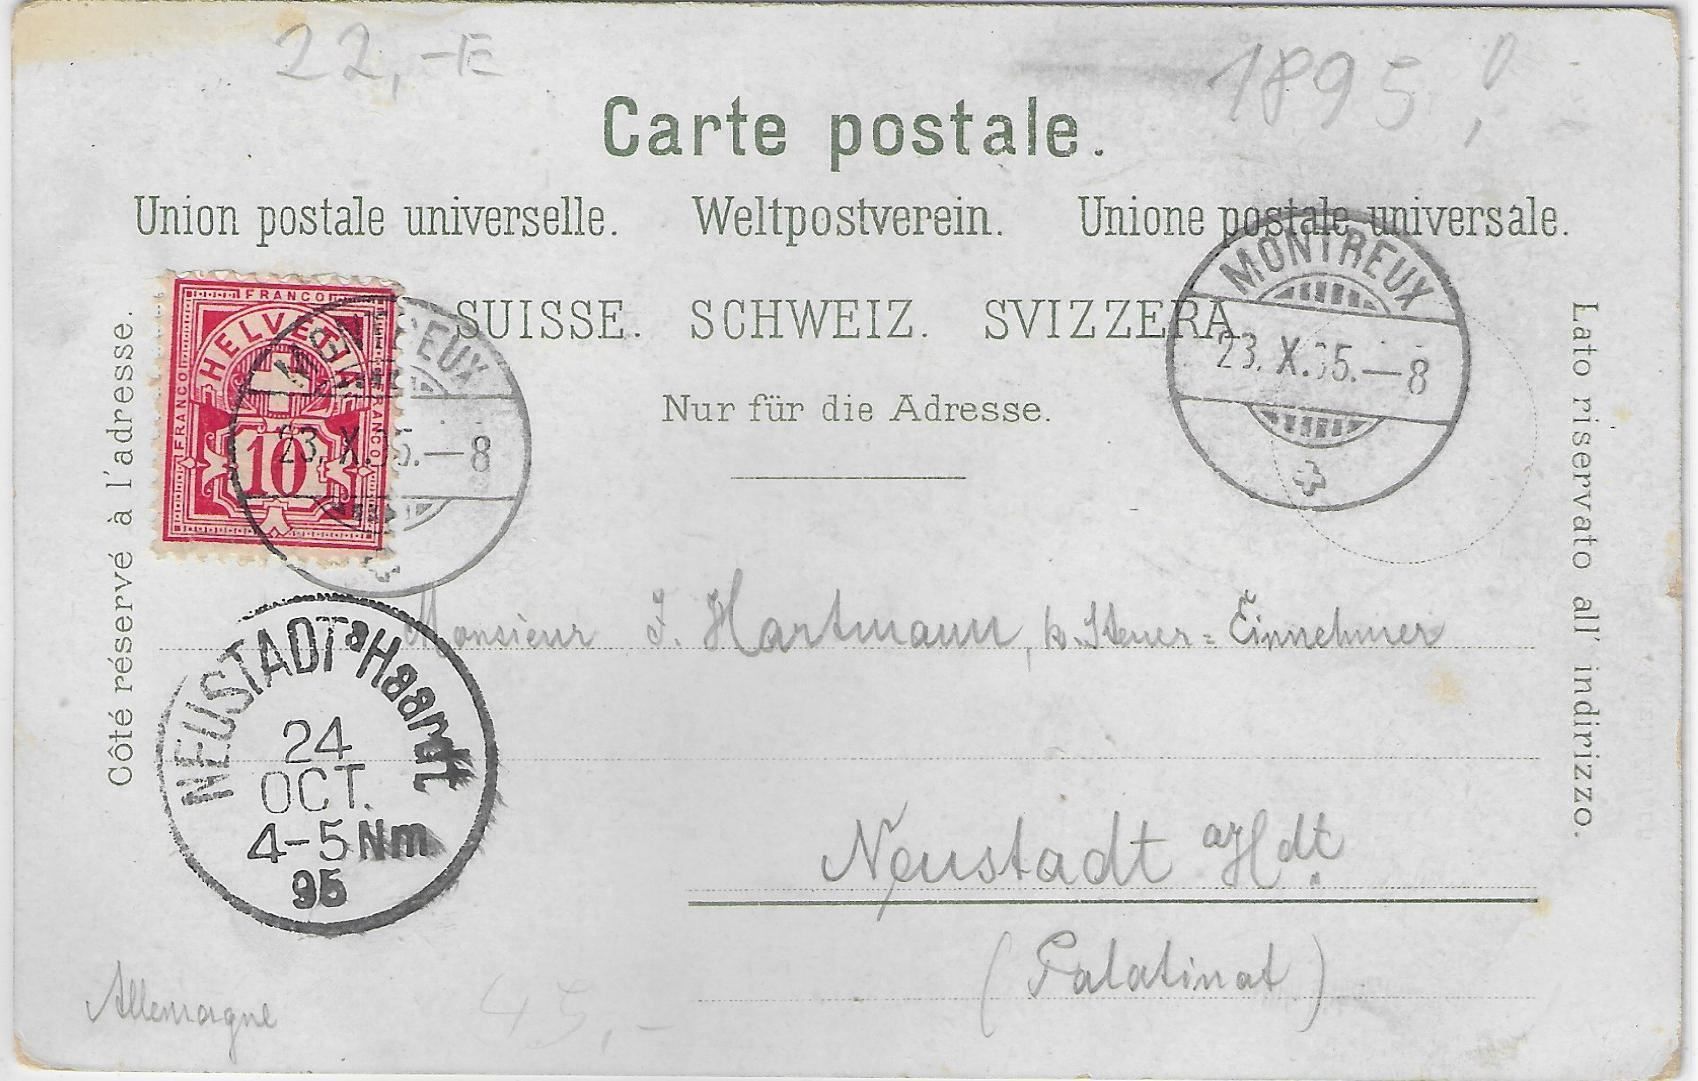 22,-E
1895,!
Carte postale.
Union postale universelle. Weltpostverein. Unione postale universale.
SUISSE. SCHWEIZ. SVIZZERA.
Nur für die Adresse.
Côté réservé à l'adresse.
Lato riservato all' indirizzo.
FRANCO
HELVETIA
FRANCO
FRANCO
10
MONTREUX
23. X. 95.-8
MONTREUX
23. X. 95.-8
NEUSTADT a Haardt
24
OCT.
4-5 Nm
95
Monsieur J. Hartmann, k. Steuer=Einnehmer
Neustadt a/Hdt.
(Palatinat)
Allemagne
45,-